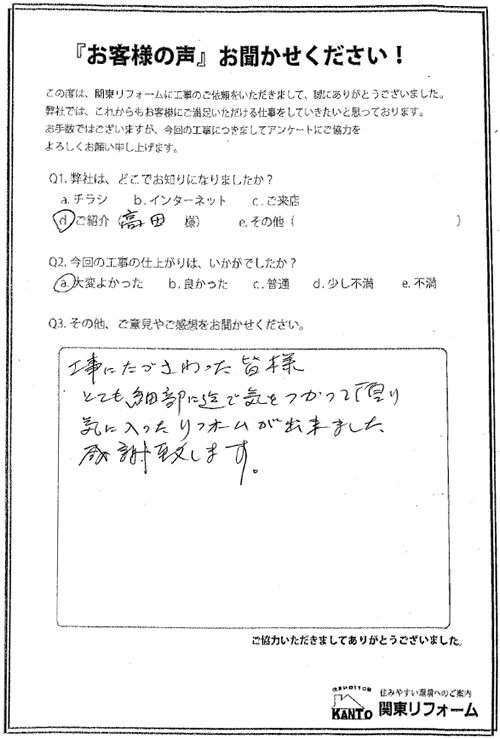 『お客様の声』お聞かせください！
この度は、関東リフォームに工事のご依頼をいただきまして、誠にありがとうございました。
弊社では、これからもお客様にご満足いただける仕事をしていきたいと思っております。
お手数ではございますが、今回の工事につきましてアンケートにご協力を
よろしくお願い申し上げます。
Q1. 弊社は、どこでお知りになりましたか？
a. チラシ　b. インターネット　c. ご来店
d ご紹介（高田　様）　e. その他（　）
Q2. 今回の工事の仕上がりは、いかがでしたか？
a. 大変よかった　b. 良かった　c. 普通　d. 少し不満　e. 不満
Q3. その他、ご意見やご感想をお聞かせください。
工事にたづさわった皆様
とても細部に迄で気をつかって頂り
気に入ったリフォームが出来ました
感謝致します。
ご協力いただきましてありがとうございました。
住まいの110番
KANTO
住みやすい環境へのご案内
関東リフォーム